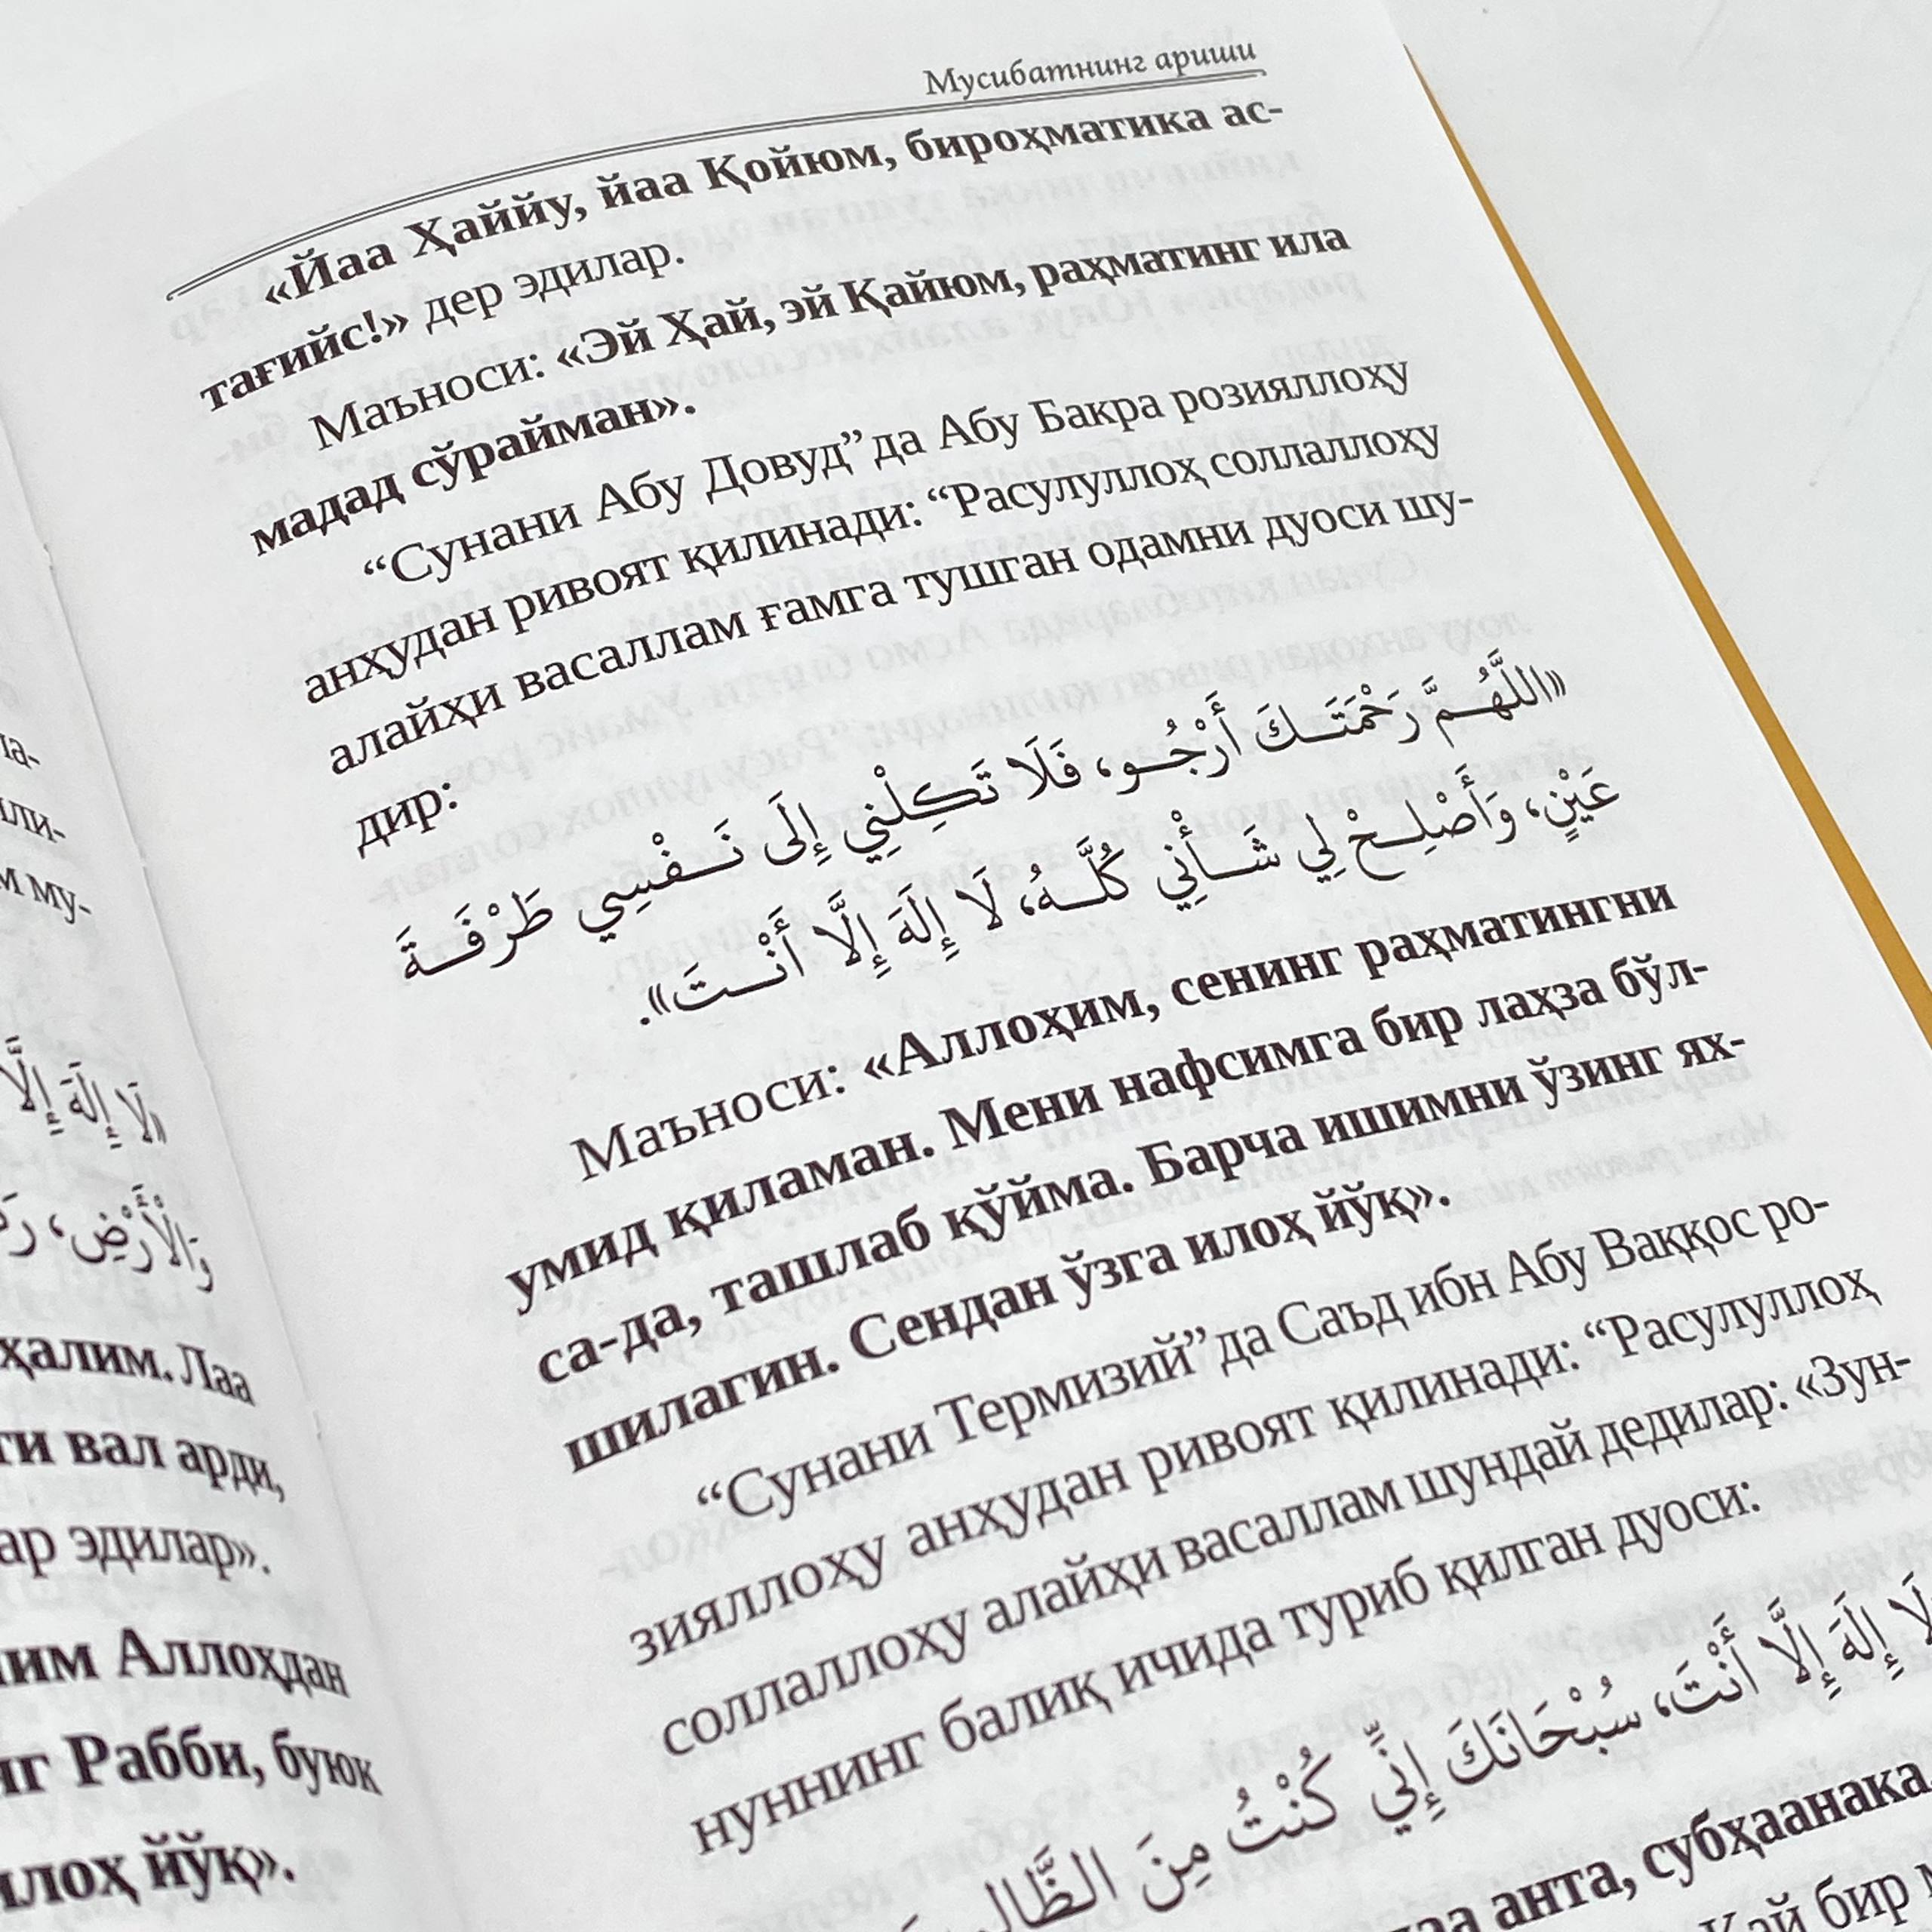 ла-
или-
м му-
«لَا إِلَهَ إِلَّا
وَالْأَرْضِ، رَ
ҳалим. Лаа
ти вал арди,
ар эдилар».
им Аллоҳдан
нг Рабби, буюк
илоҳ йўқ».
Мусибатнинг ариши
«Йаа Ҳаййу, йаа Қойюм, бироҳматика ас-
тағийс!» дер эдилар.
Маъноси: «Эй Ҳай, эй Қайюм, раҳматинг ила
мадад сўрайман».
“Сунани Абу Довуд”да Абу Бакра розияллоҳу
анҳудан ривоят қилинади: “Расулуллоҳ соллаллоҳу
алайҳи васаллам ғамга тушган одамни дуоси шу-
дир:
«اللَّهُمَّ رَحْمَتَكَ أَرْجُو، فَلَا تَكِلْنِي إِلَى نَفْسِي طَرْفَةَ
عَيْنٍ، وَأَصْلِحْ لِي شَأْنِي كُلَّهُ، لَا إِلَهَ إِلَّا أَنْتَ».
Маъноси: «Аллоҳим, сенинг раҳматингни
умид қиламан. Мени нафсимга бир лаҳза бўл-
са-да, ташлаб қўйма. Барча ишимни ўзинг ях-
шилагин. Сендан ўзга илоҳ йўқ».
“Сунани Термизий”да Саъд ибн Абу Ваққос ро-
зияллоҳу анҳудан ривоят қилинади: “Расулуллоҳ
соллаллоҳу алайҳи васаллам шундай дедилар: «Зун-
нуннинг балиқ ичида туриб қилган дуоси:
لَا إِلَهَ إِلَّا أَنْتَ، سُبْحَانَكَ إِنِّي كُنْتُ مِنَ الظَّالِ
анта, субҳаанака
бир